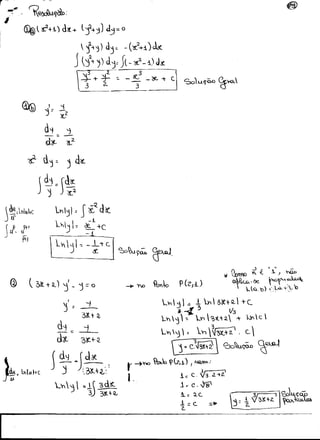 Resolução:
① ⓐ (x²+1) dx + (y²+y) dy = 0
(y²+y) dy = -(x²+1) dx
∫(y²+y) dy = ∫(-x²-1) dx
y³/3 + y²/2 = -x³/3 - x + C Solução Geral
① ⓑ y' = y/x²
dy/dx = y/x²
x² dy = y dx
∫ dy/y = ∫ dx/x²
Ln|y| = ∫ x⁻² dx
Ln|y| = x⁻¹/-1 + C
Ln|y| = -1/x + C Solução Geral
(3x+2) y' - y = 0 → no Ponto P(2,1)
y' = y/3x+2
dy/dx = y/3x+2
∫ dy/y = ∫ dx/3x+2
Ln|y| = 1/3 ∫ 3dx/3x+2
Ln|y| = 1/3 Ln|3x+2| + C
Ln|y| = Ln|3x+2|^1/3 + Ln|C|
Ln|y| = Ln|∛3x+2 . C|
y = C ∛3x+2 Solução Geral
→ no Ponto P(2,1), temos:
1 = C. ∛3.2+2
1 = C. ∛8
1 = 2C
1/2 = C ⇒ y = 1/2 ∛3x+2 Solução Particular